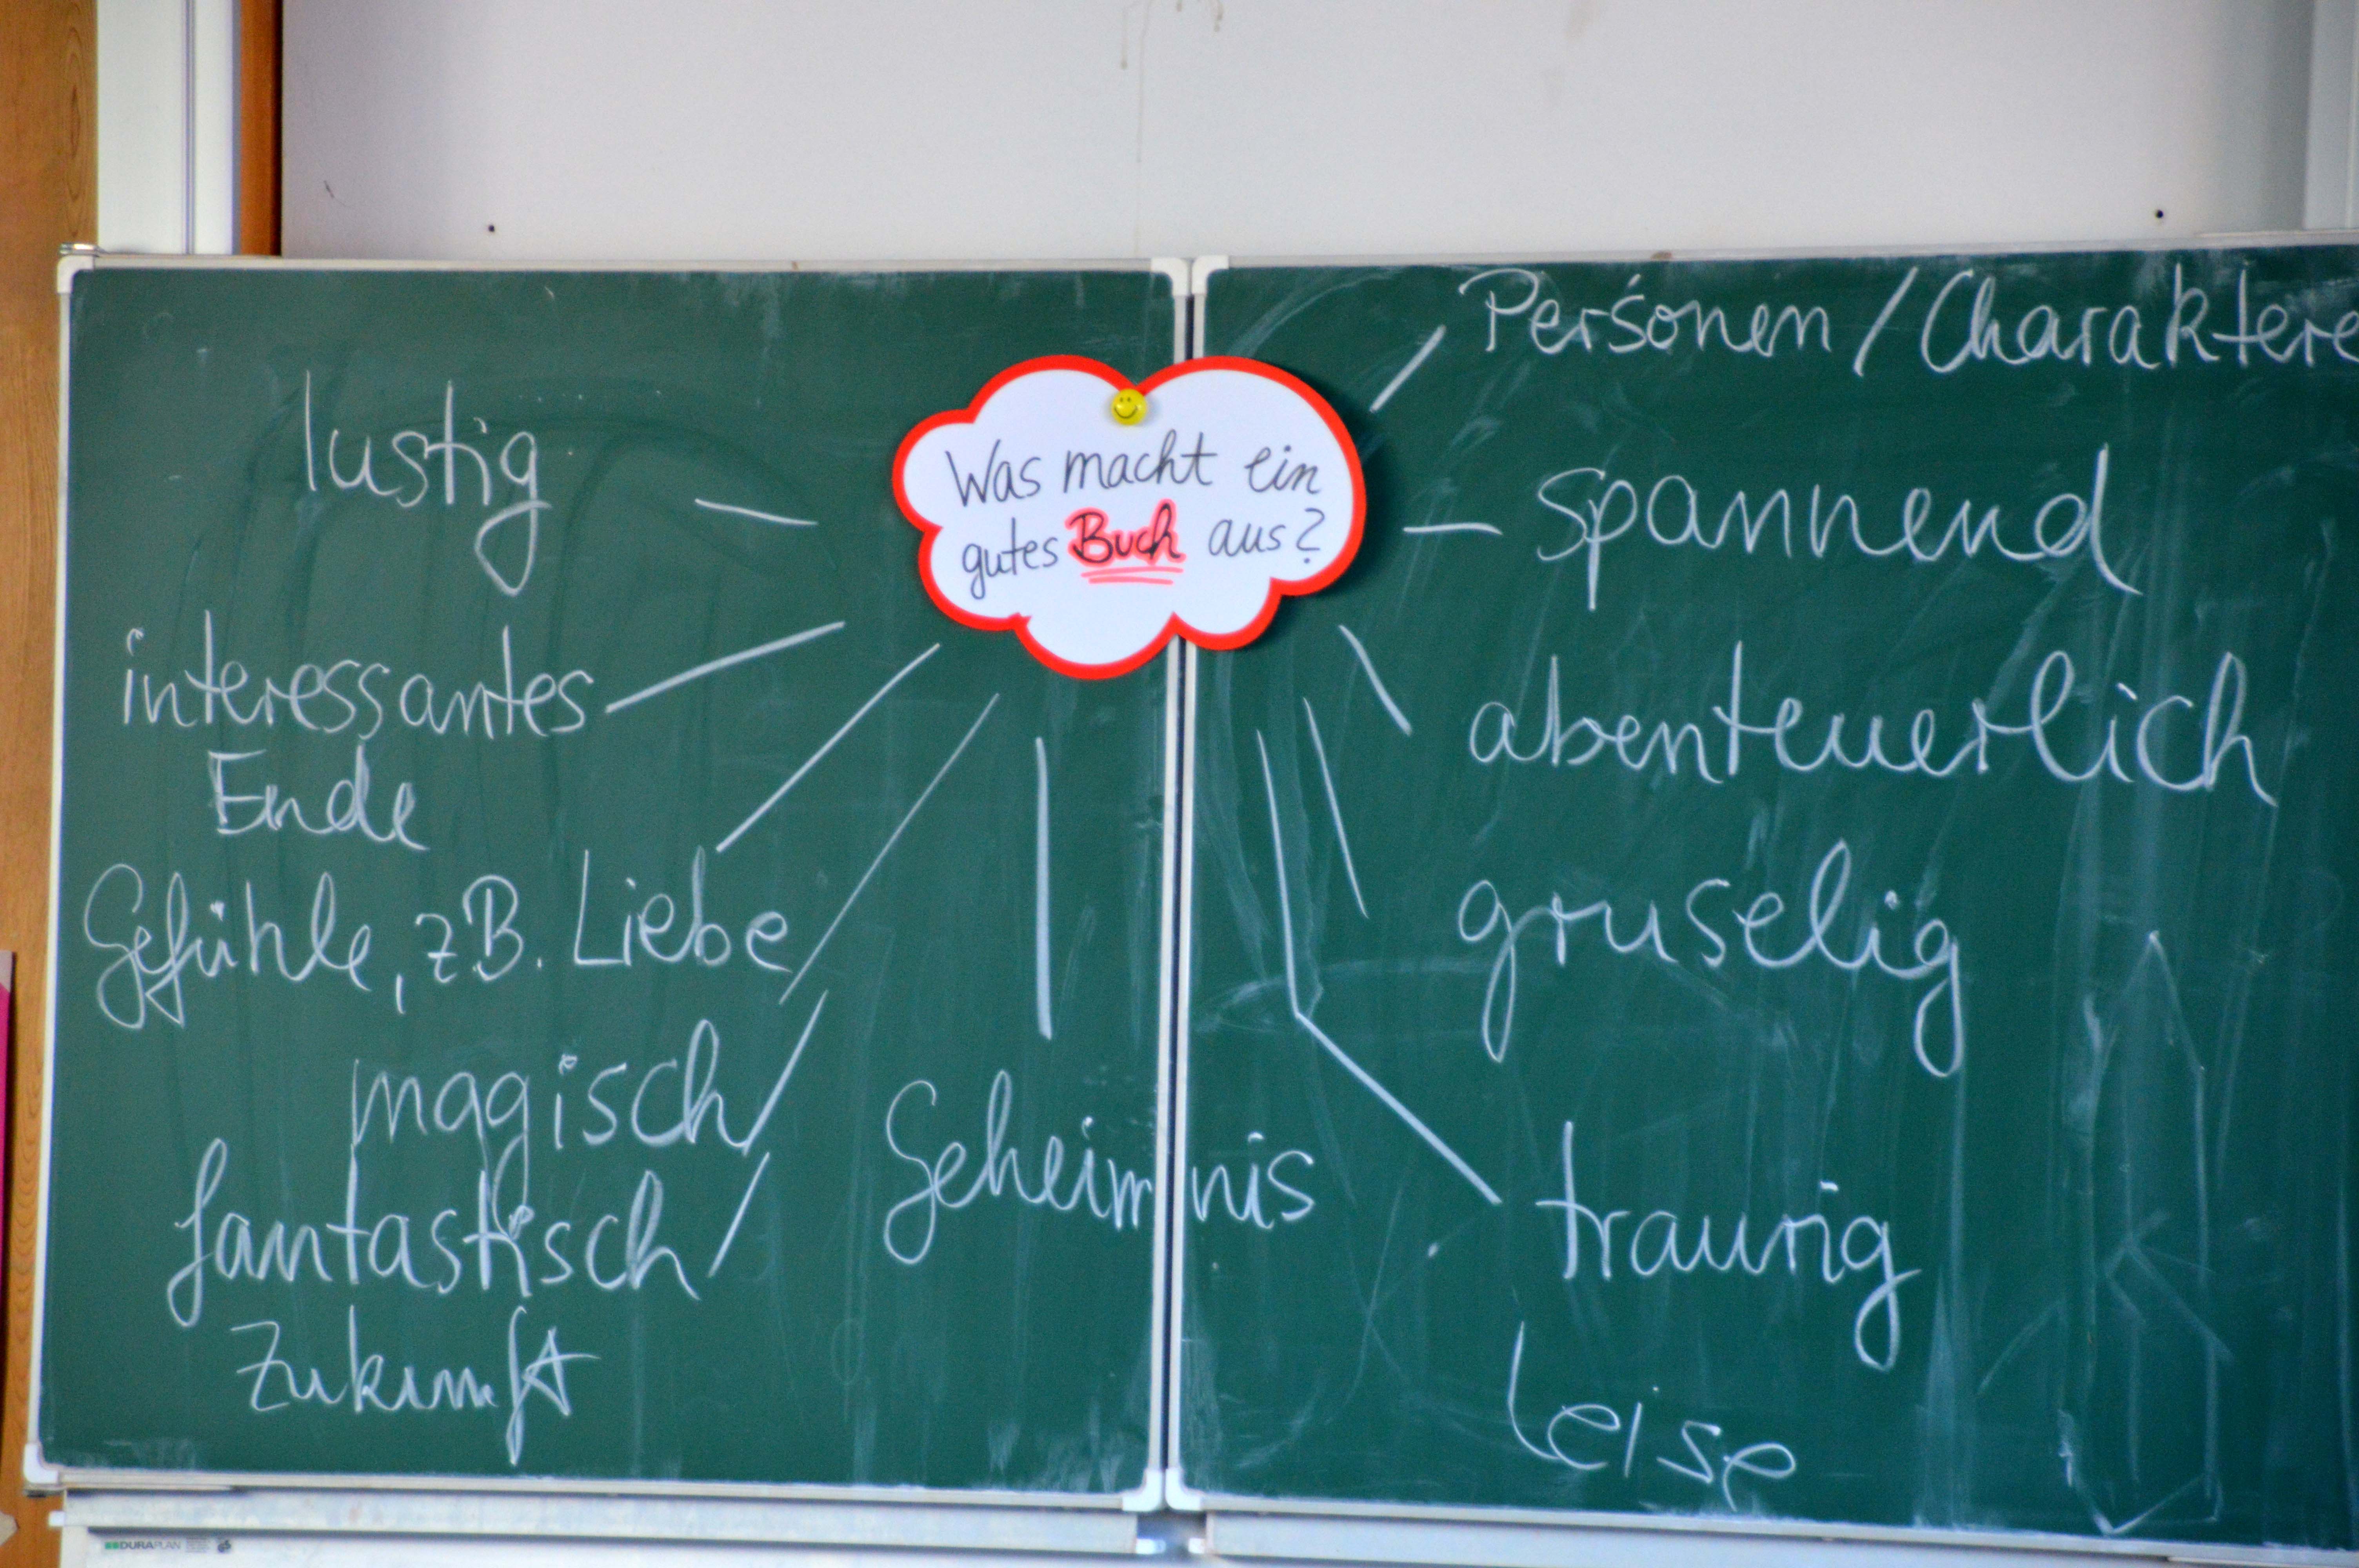 Was macht ein
gutes Buch aus?
lustig
interessantes
Ende
Gefühle, z.B. Liebe
magisch
fantastisch
Zukunft
Geheimnis
Personen / Charaktere
spannend
abenteuerlich
gruselig
traurig
leise
DURAPLAN